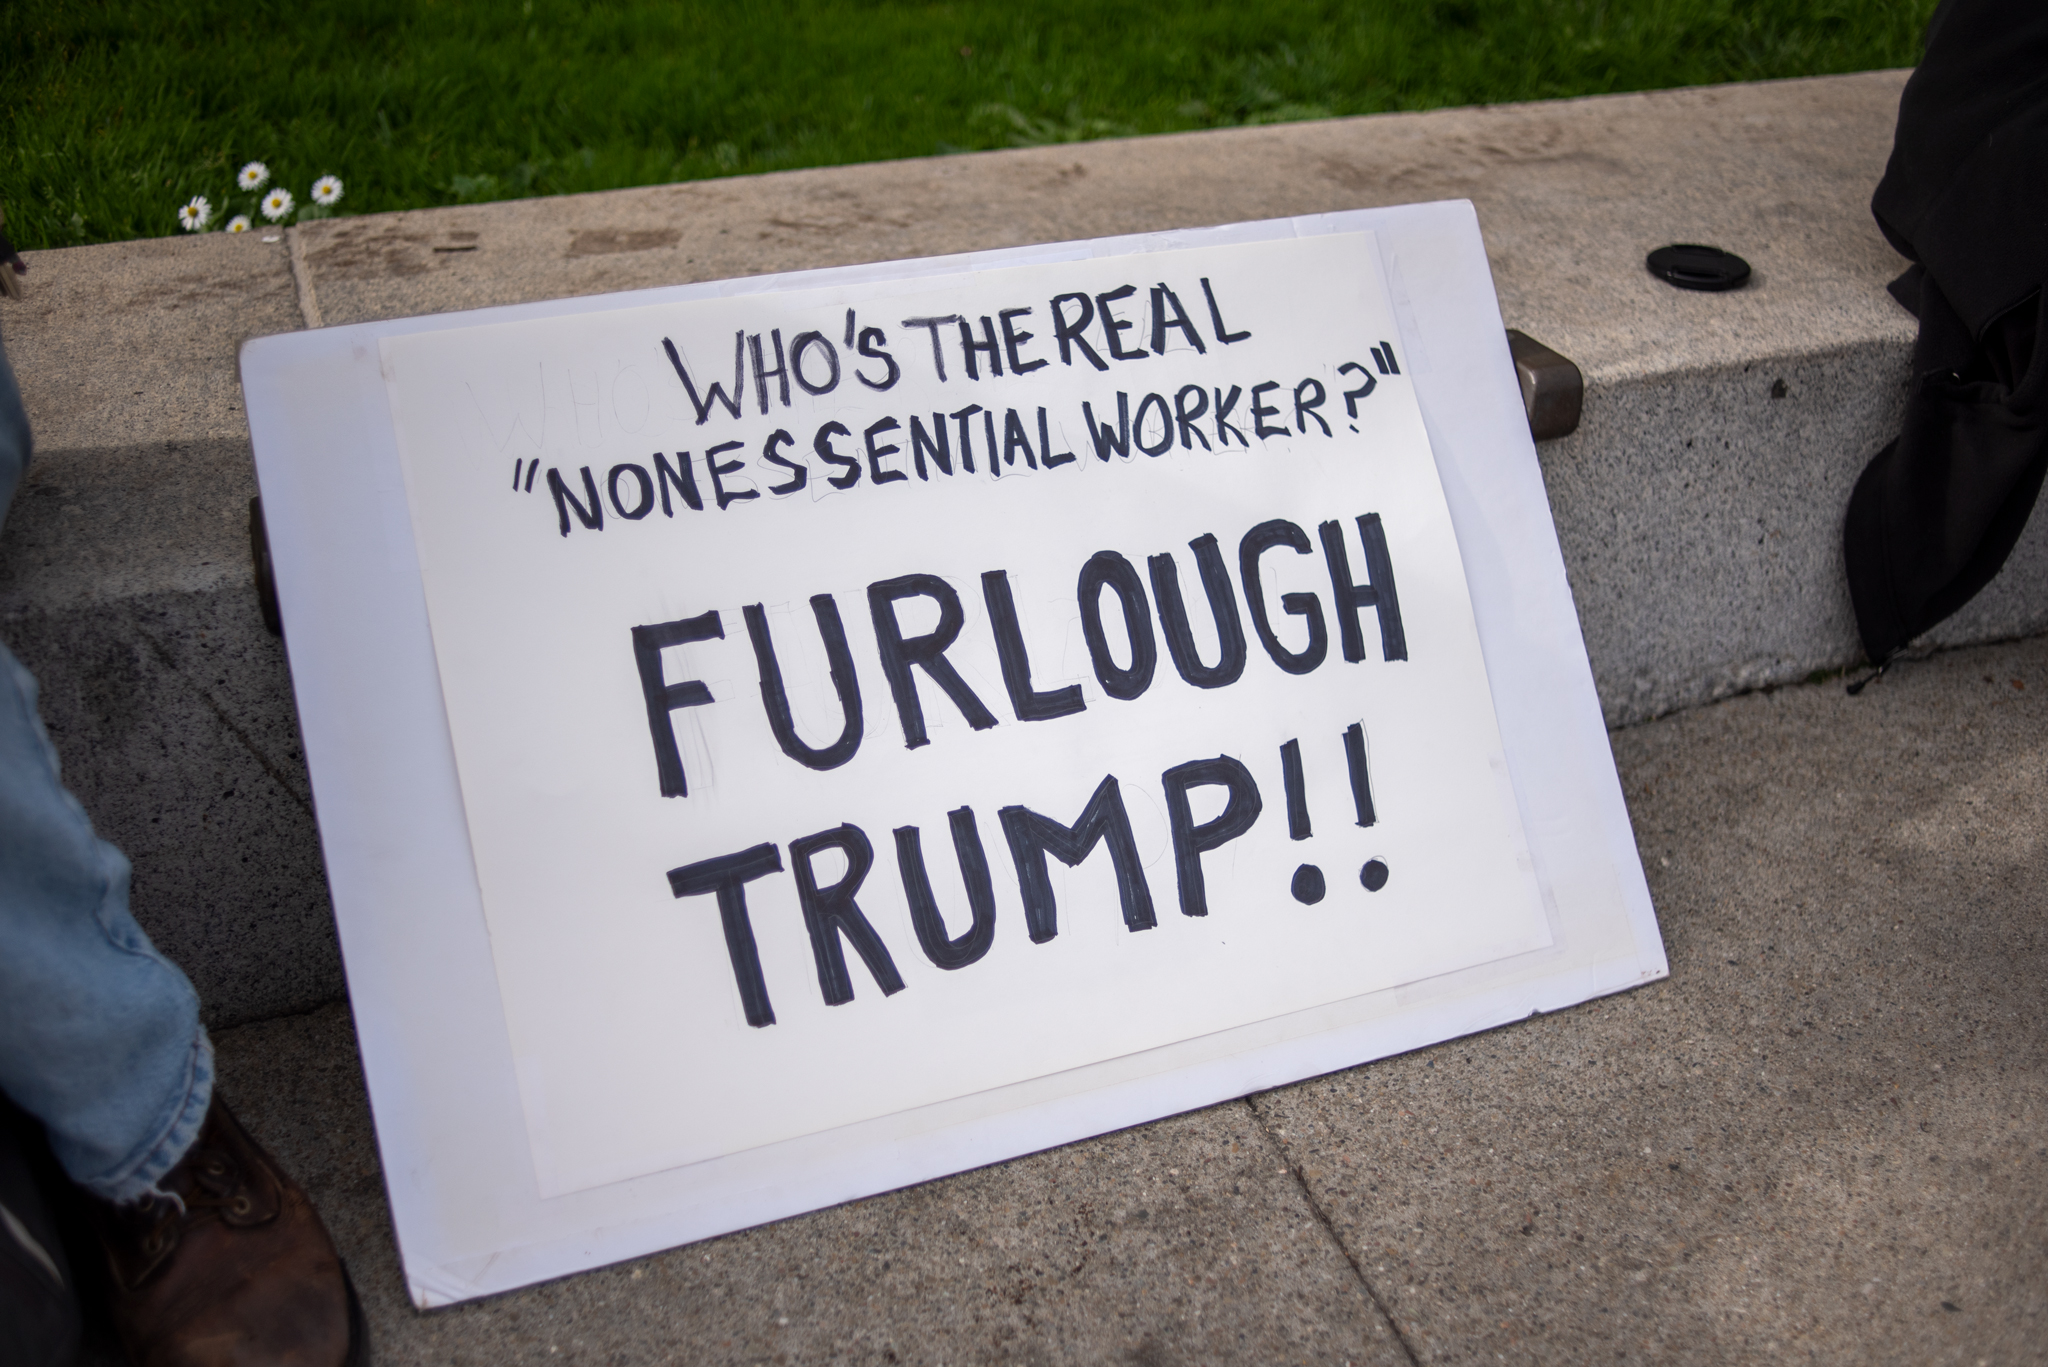 WHO'S THE REAL
"NONESSENTIAL WORKER?"
FURLOUGH
TRUMP!!